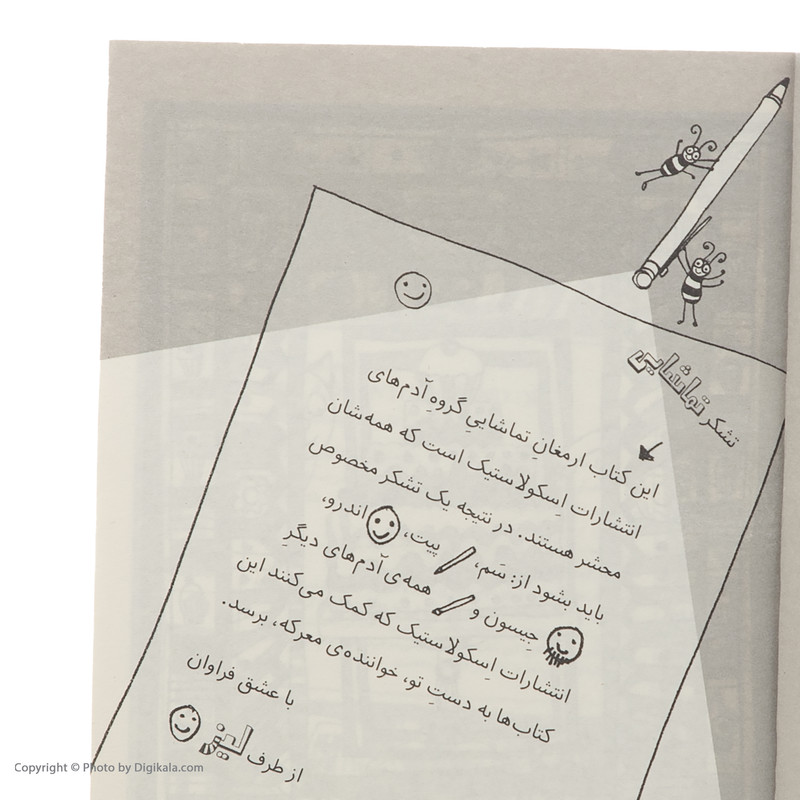 تشکر تماشایی
این کتاب ارمغانِ تماشاییِ گروهِ آدم‌های
انتشارات اِسکولاستیک است که همه‌شان
محشر هستند. در نتیجه یک تشکر مخصوص
باید بشود از: سَم، پیت، اندرو،
جِیسون و همه‌ی آدم‌های دیگرِ
انتشارات اِسکولاستیک که کمک می‌کنند این
کتاب‌ها به دستِ تو، خواننده‌ی معرکه، برسد.
با عشق فراوان
از طرف لیز
Copyright © Photo by Digikala.com